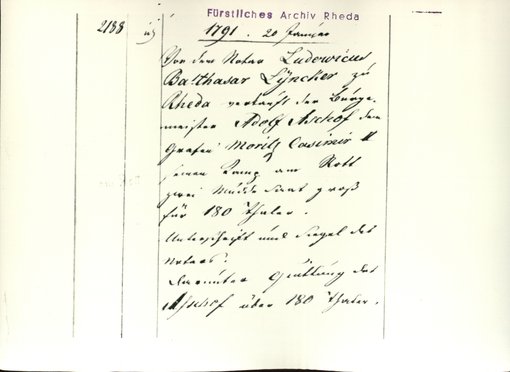 Fürstliches Archiv Rheda
2188
1791. 20 Januar
Vor dem Notar Ludowicus
Balthasar Lÿncker zu
Rheda verkauft der Bürge-
meister Adolf Aschof dem
Grafen Moritz Casimir II
seinen Kamp am Rott
zwei Müdde Saat groß
für 180 Thaler.
Unterschrift und Siegel des
Notars.
Darunter Quittung des
Aschof über 180 Thaler.